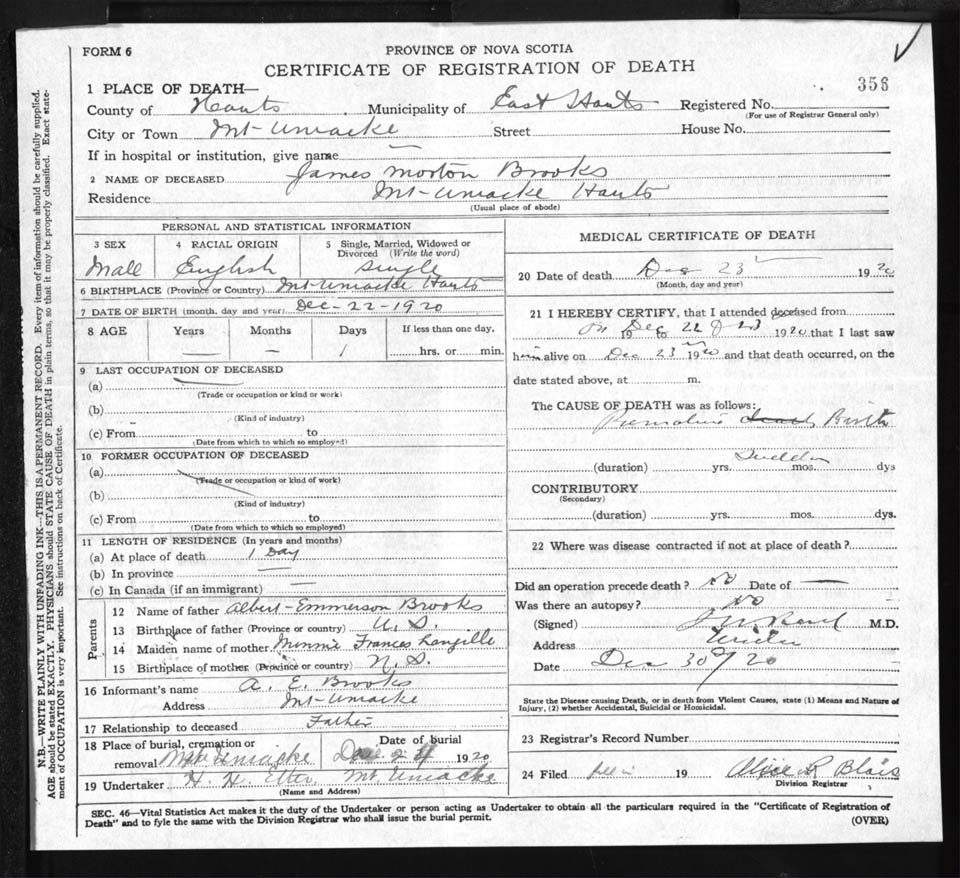 FORM 6
PROVINCE OF NOVA SCOTIA
CERTIFICATE OF REGISTRATION OF DEATH
356
1 PLACE OF DEATH—
County of Hants Municipality of East Hants Registered No.
(For use of Registrar General only)
City or Town Mt-Uniacke Street House No.
If in hospital or institution, give name —
2 NAME OF DECEASED James Morton Brooks
Residence Mt-Uniacke Hants
(Usual place of abode)
PERSONAL AND STATISTICAL INFORMATION
3 SEX 4 RACIAL ORIGIN 5 Single, Married, Widowed or Divorced (Write the word)
Male English Single
6 BIRTHPLACE (Province or Country) Mt-Uniacke Hants
7 DATE OF BIRTH (month, day and year) Dec-22-1920
8 AGE Years Months Days If less than one day,
— — 1 hrs. or min.
9 LAST OCCUPATION OF DECEASED
(a)
(Trade or occupation or kind or work)
(b)
(Kind of industry)
(c) From to
(Date from which to which so employed)
10 FORMER OCCUPATION OF DECEASED
(a)
(Trade or occupation or kind of work)
(b)
(Kind of industry)
(c) From to
(Date from which to which so employed)
11 LENGTH OF RESIDENCE (In years and months)
(a) At place of death 1 Day
(b) In province —
(c) In Canada (if an immigrant) —
Parents
12 Name of father Albert-Emmerson Brooks
13 Birthplace of father (Province or country) U.S.
14 Maiden name of mother Minnie Frances Langille
15 Birthplace of mother (Province or country) N.S.
16 Informant's name A. E. Brooks
Address Mt-Uniacke
17 Relationship to deceased Father
18 Place of burial, cremation or Date of burial
removal Mt Uniacke Dec 1920
19 Undertaker H. H. Etter Mt Uniacke
(Name and Address)
MEDICAL CERTIFICATE OF DEATH
20 Date of death Dec 23 1920
(Month, day and year)
21 I HEREBY CERTIFY, that I attended deceased from
on 19 Dec to 22 & 23 1920 that I last saw
him alive on Dec 23 1920 and that death occurred, on the
date stated above, at m.
The CAUSE OF DEATH was as follows:
Premature Birth
Sudden
(duration) yrs. mos. dys
CONTRIBUTORY
(Secondary)
(duration) yrs. mos. dys.
22 Where was disease contracted if not at place of death?
Did an operation precede death? No Date of —
Was there an autopsy? No
(Signed) M.D.
Address
Date Dec 30 / 20
State the Disease causing Death, or in death from Violent Causes, state (1) Means and Nature of
Injury, (2) whether Accidental, Suicidal or Homicidal.
23 Registrar's Record Number
24 Filed 19 Alice R Blois
Division Registrar
SEC. 46—Vital Statistics Act makes it the duty of the Undertaker or person acting as Undertaker to obtain all the particulars required in the "Certificate of Registration of
Death" and to fyle the same with the Division Registrar who shall issue the burial permit.
(OVER)
N.B.—WRITE PLAINLY WITH UNFADING INK—THIS IS A PERMANENT RECORD. Every item of information should be carefully supplied.
AGE should be stated EXACTLY. PHYSICIANS should STATE CAUSE OF DEATH in plain terms, so that it may be properly classified. Exact state-
ment of OCCUPATION is very important. See instructions on back of Certificate.